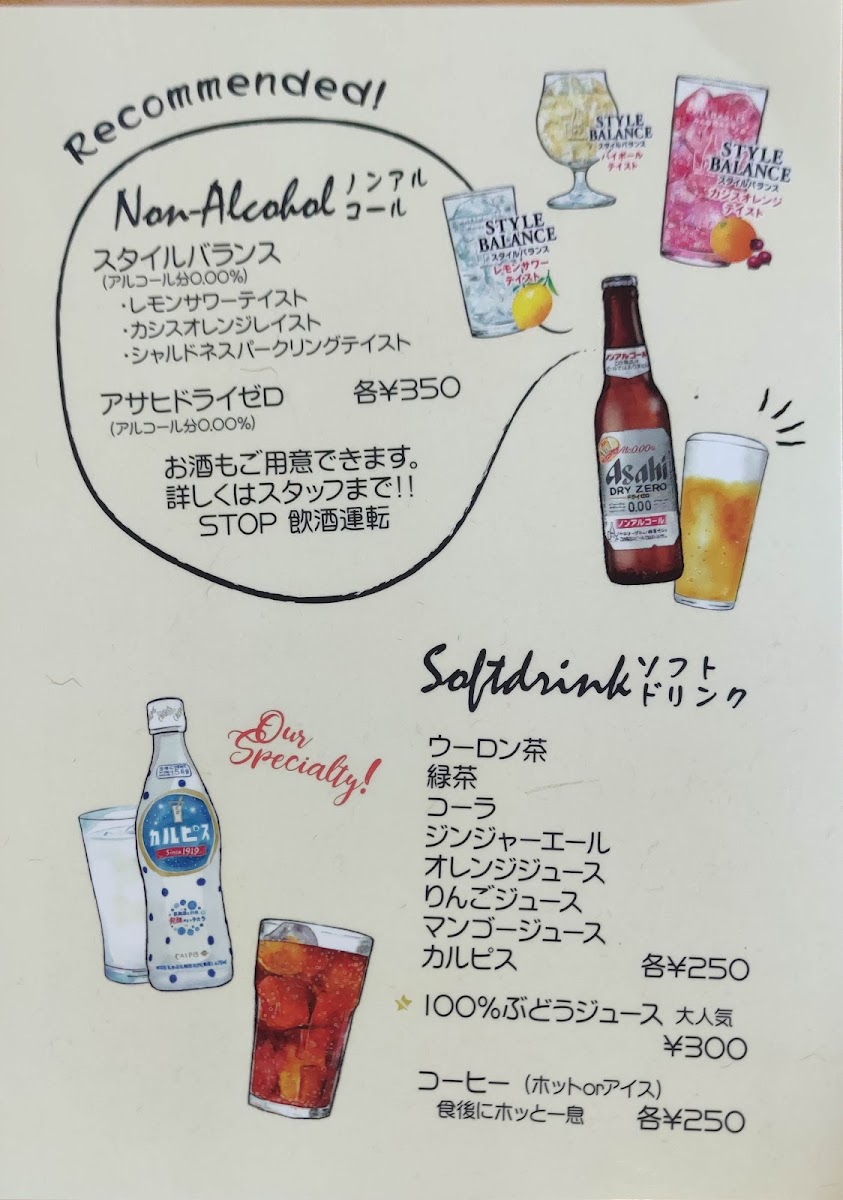 Recommended!
Non-Alcohol ノンアル
コール
スタイルバランス
(アルコール分0.00%)
・レモンサワーテイスト
・カシスオレンジレイスト
・シャルドネスパークリングテイスト
アサヒドライゼロ 各¥350
(アルコール分0.00%)
お酒もご用意できます。
詳しくはスタッフまで!!
STOP 飲酒運転
STYLE
BALANCE
スタイルバランス
ハイボール
テイスト
STYLE
BALANCE
スタイルバランス
カシスオレンジ
テイスト
STYLE
BALANCE
スタイルバランス
レモンサワー
テイスト
ノンアルコール
Alc.0.00%
Asahi
DRY ZERO
ドライゼロ
0.00
ノンアルコール
Softdrink ソフト
ドリンク
Our
Specialty!
カルピス
Since 1919
CALPIS
ウーロン茶
緑茶
コーラ
ジンジャーエール
オレンジジュース
りんごジュース
マンゴージュース
カルピス 各¥250
100%ぶどうジュース 大人気
¥300
コーヒー (ホットorアイス)
食後にホッと一息 各¥250